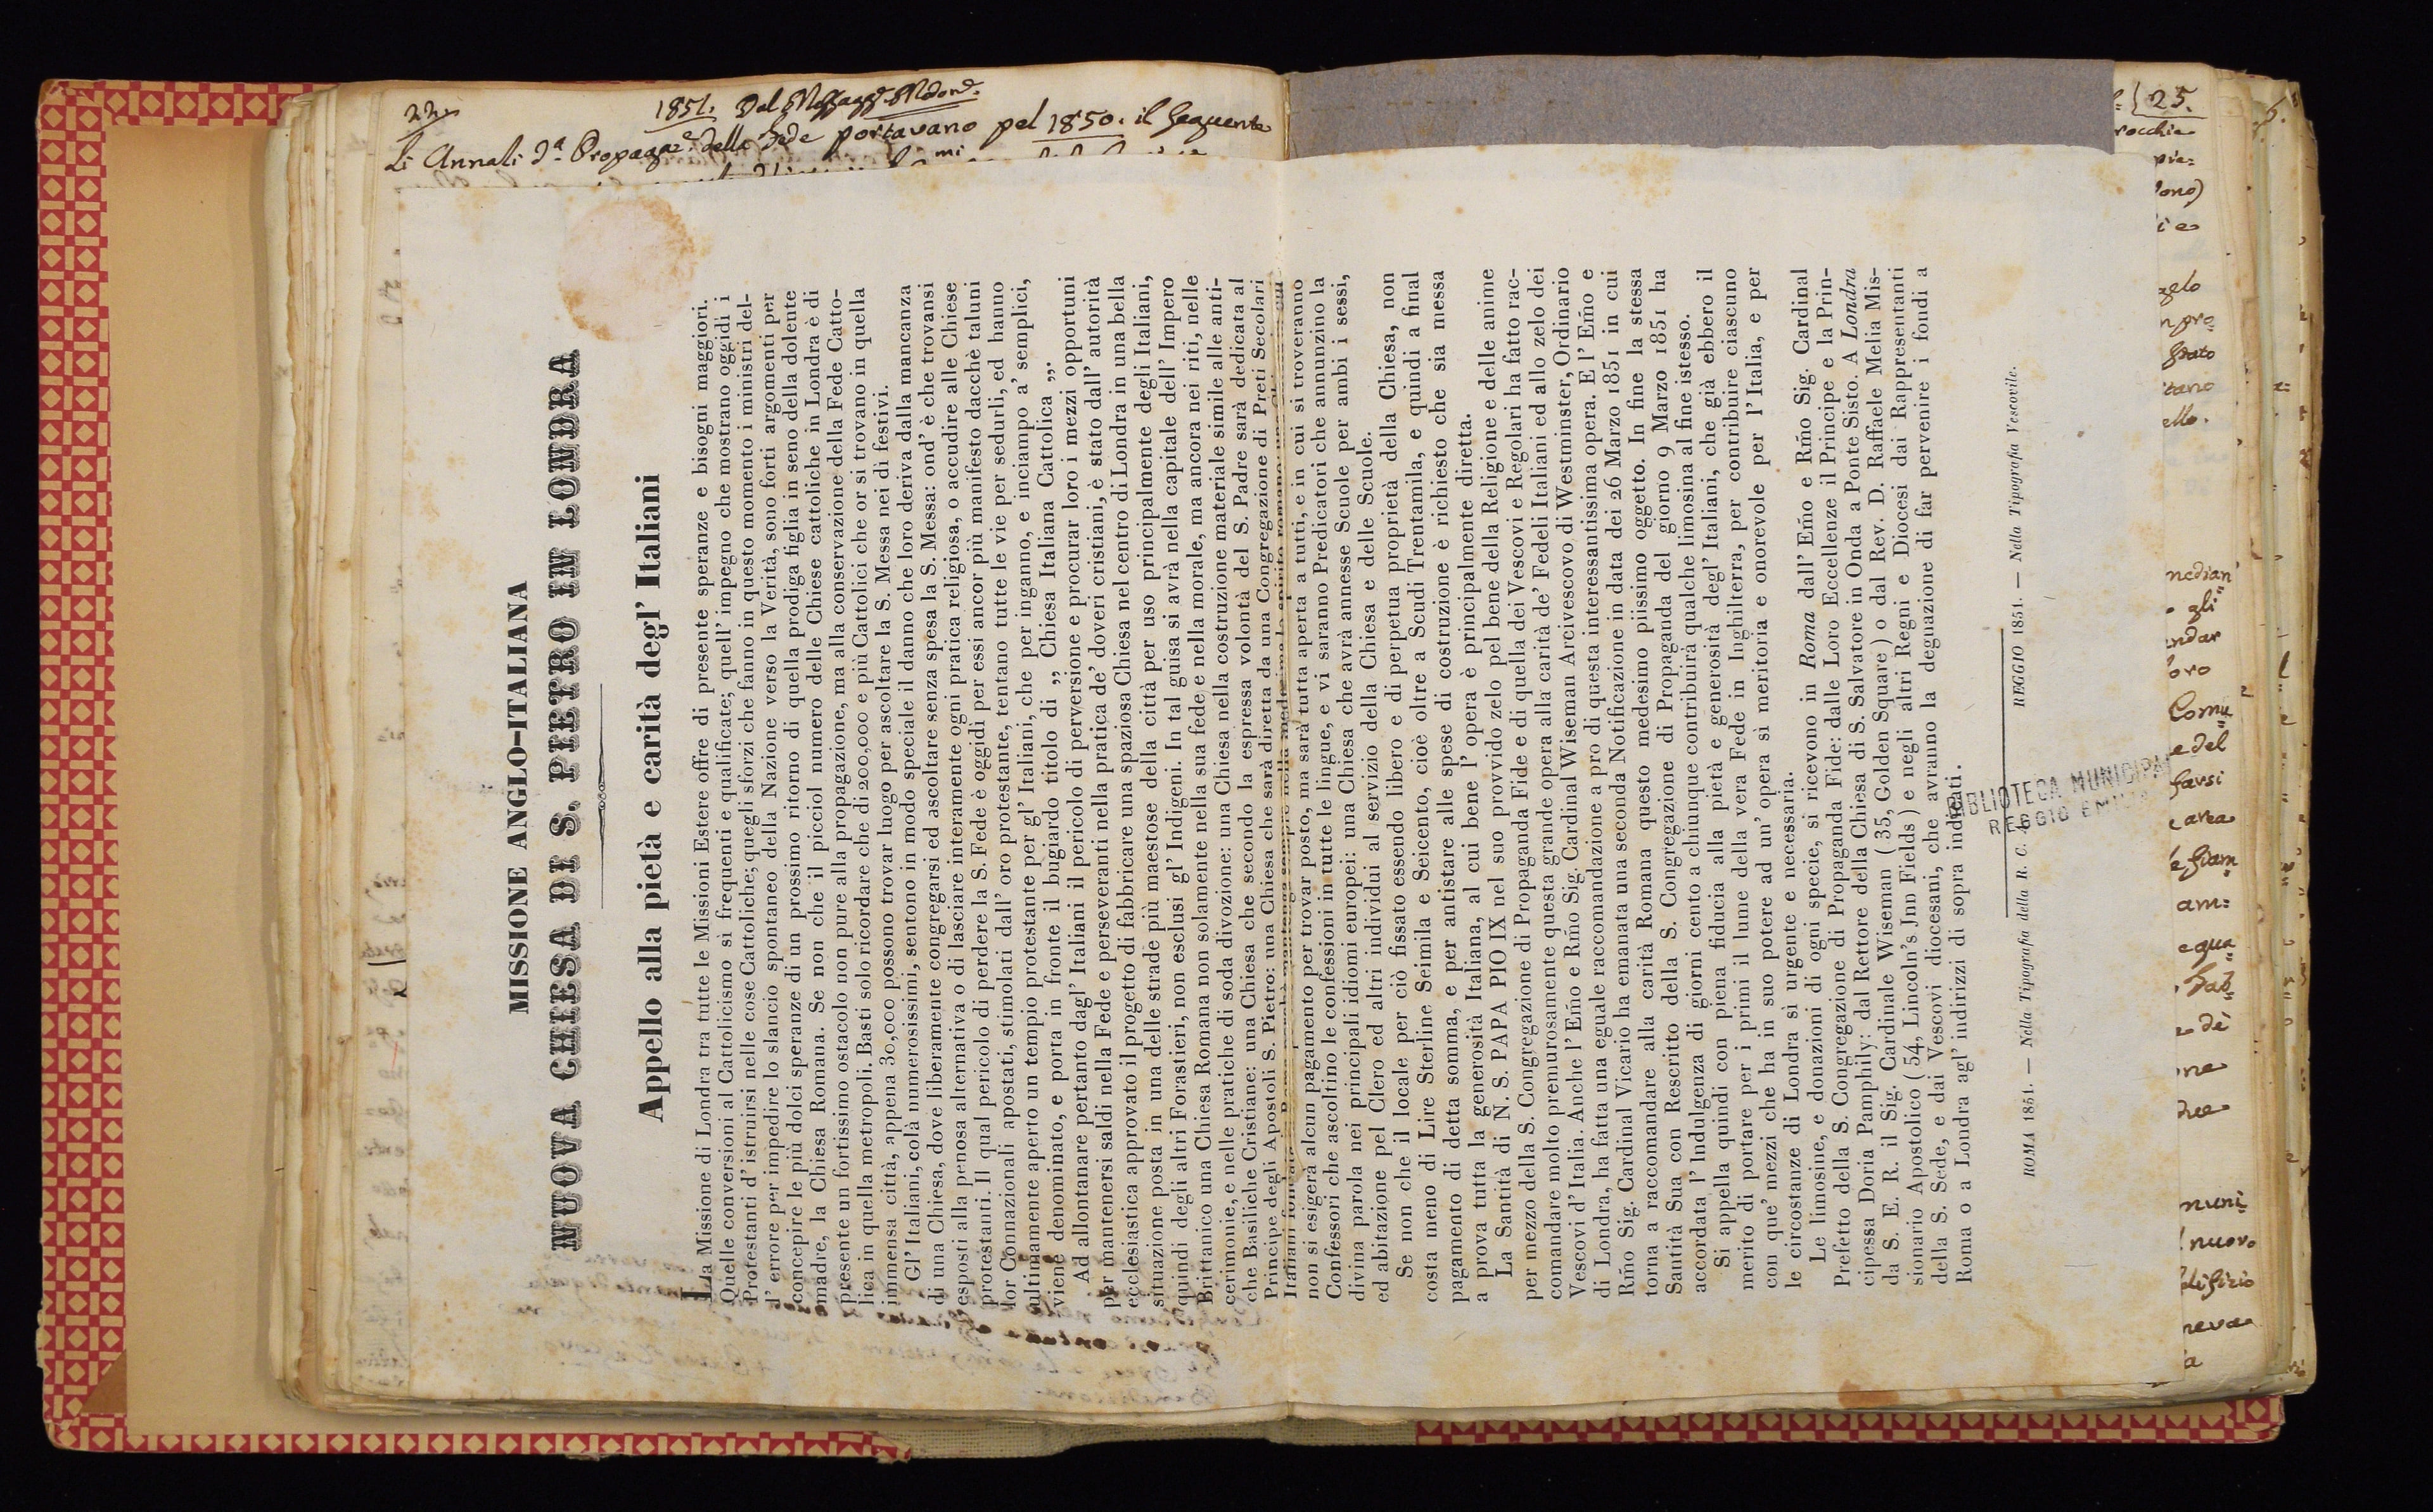 22.
1851. Dal Messagg. Moden.
Li Annali d.a Propagaz.e della Fede portavano pel 1850. il seguente
25.
MISSIONE ANGLO-ITALIANA
NUOVA CHIESA DI S. PIETRO IN LONDRA
Appello alla pietà e carità degl' Italiani
La Missione di Londra tra tutte le Missioni Estere offre di presente speranze e bisogni maggiori.
Quelle conversioni al Cattolicismo sì frequenti e qualificate; quell' impegno che mostrano oggidì i
Protestanti d' istruirsi nelle cose Cattoliche; quegli sforzi che fanno in questo momento i ministri del-
l' errore per impedire lo slancio spontaneo della Nazione verso la Verità, sono forti argomenti per
concepire le più dolci speranze di un prossimo ritorno di quella prodiga figlia in seno della dolente
madre, la Chiesa Romana. Se non che il picciol numero delle Chiese cattoliche in Londra è di
presente un fortissimo ostacolo non pure alla propagazione, ma alla conservazione della Fede Catto-
lica in quella metropoli. Basti solo ricordare che di 200,000 e più Cattolici che or si trovano in quella
immensa città, appena 30,000 possono trovar luogo per ascoltare la S. Messa nei dì festivi.
Gl' Italiani, colà numerosissimi, sentono in modo speciale il danno che loro deriva dalla mancanza
di una Chiesa, dove liberamente congregarsi ed ascoltare senza spesa la S. Messa: ond' è che trovansi
esposti alla penosa alternativa o di lasciare interamente ogni pratica religiosa, o accudire alle Chiese
protestanti. Il qual pericolo di perdere la S. Fede è oggidì per essi ancor più manifesto dacchè taluni
lor Connazionali apostati, stimolati dall' oro protestante, tentano tutte le vie per sedurli, ed hanno
ultimamente aperto un tempio protestante per gl' Italiani, che per inganno, e inciampo a' semplici,
viene denominato, e porta in fronte il bugiardo titolo di „ Chiesa Italiana Cattolica „.
Ad allontanare pertanto dagl' Italiani il pericolo di perversione e procurar loro i mezzi opportuni
per mantenersi saldi nella Fede e perseveranti nella pratica de' doveri cristiani, è stato dall' autorità
ecclesiastica approvato il progetto di fabbricare una spaziosa Chiesa nel centro di Londra in una bella
situazione posta in una delle strade più maestose della città per uso principalmente degli Italiani,
quindi degli altri Forastieri, non esclusi gl' Indigeni. In tal guisa si avrà nella capitale dell' Impero
Brittanico una Chiesa Romana non solamente nella sua fede e nella morale, ma ancora nei riti, nelle
cerimonie, e nelle pratiche di soda divozione: una Chiesa nella costruzione materiale simile alle anti-
che Basiliche Cristiane: una Chiesa che secondo la espressa volontà del S. Padre sarà dedicata al
Principe degli Apostoli S. Pietro: una Chiesa che sarà diretta da una Congregazione di Preti Secolari
Italiani
non si esigerà alcun pagamento per trovar posto, ma sarà tutta aperta a tutti, e in cui si troveranno
Confessori che ascoltino le confessioni in tutte le lingue, e vi saranno Predicatori che annunzino la
divina parola nei principali idiomi europei: una Chiesa che avrà annesse Scuole per ambi i sessi,
ed abitazione pel Clero ed altri individui al servizio della Chiesa e delle Scuole.
Se non che il locale per ciò fissato essendo libero e di perpetua proprietà della Chiesa, non
costa meno di Lire Sterline Seimila e Seicento, cioè oltre a Scudi Trentamila, e quindi a final
pagamento di detta somma, e per antistare alle spese di costruzione è richiesto che sia messa
a prova tutta la generosità Italiana, al cui bene l' opera è principalmente diretta.
La Santità di N. S. PAPA PIO IX nel suo provvido zelo pel bene della Religione e delle anime
per mezzo della S. Congregazione di Propaganda Fide e di quella dei Vescovi e Regolari ha fatto rac-
comandare molto premurosamente questa grande opera alla carità de' Fedeli Italiani ed allo zelo dei
Vescovi d' Italia. Anche l' Emo e Rmo Sig. Cardinal Wiseman Arcivescovo di Westminster, Ordinario
di Londra, ha fatta una eguale raccomandazione a pro di questa interessantissima opera. E l' Emo e
Rmo Sig. Cardinal Vicario ha emanata una seconda Notificazione in data dei 26 Marzo 1851 in cui
torna a raccomandare alla carità Romana questo medesimo piissimo oggetto. In fine la stessa
Santità Sua con Rescritto della S. Congregazione di Propaganda del giorno 9 Marzo 1851 ha
accordata l' Indulgenza di giorni cento a chiunque contribuirà qualche limosina al fine istesso.
Si appella quindi con piena fiducia alla pietà e generosità degl' Italiani, che già ebbero il
merito di portare per i primi il lume della vera Fede in Inghilterra, per contribuire ciascuno
con que' mezzi che ha in suo potere ad un' opera sì meritoria e onorevole per l' Italia, e per
le circostanze di Londra sì urgente e necessaria.
Le limosine, e donazioni di ogni specie, si ricevono in Roma dall' Emo e Rmo Sig. Cardinal
Prefetto della S. Congregazione di Propaganda Fide: dalle Loro Eccellenze il Principe e la Prin-
cipessa Doria Pamphily: dal Rettore della Chiesa di S. Salvatore in Onda a Ponte Sisto. A Londra
da S. E. R. il Sig. Cardinale Wiseman ( 35, Golden Square ) o dal Rev. D. Raffaele Melia Mis-
sionario Apostolico ( 54, Lincoln's Jnn Fields ) e negli altri Regni e Diocesi dai Rappresentanti
della S. Sede, e dai Vescovi diocesani, che avranno la degnazione di far pervenire i fondi a
Roma o a Londra agl' indirizzi di sopra indicati.
ROMA 1851. — Nella Tipografia della R. C. A.
REGGIO 1851. — Nella Tipografia Vescovile.
BIBLIOTECA MUNICIPALE
REGGIO EMILIA